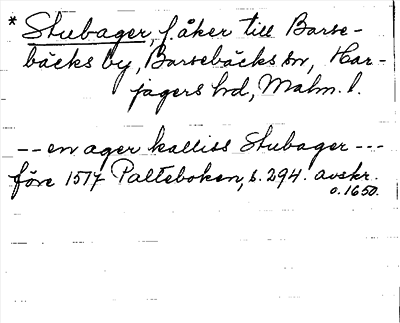 * Stubager, f. åker till Barse-
bäcks by, Barsebäcks sn, Har-
jagers hd, Malm. l.
-- en ager kalliss Stubager ---
före 1517 Palteboken, s. 294. avskr.
o. 1650.